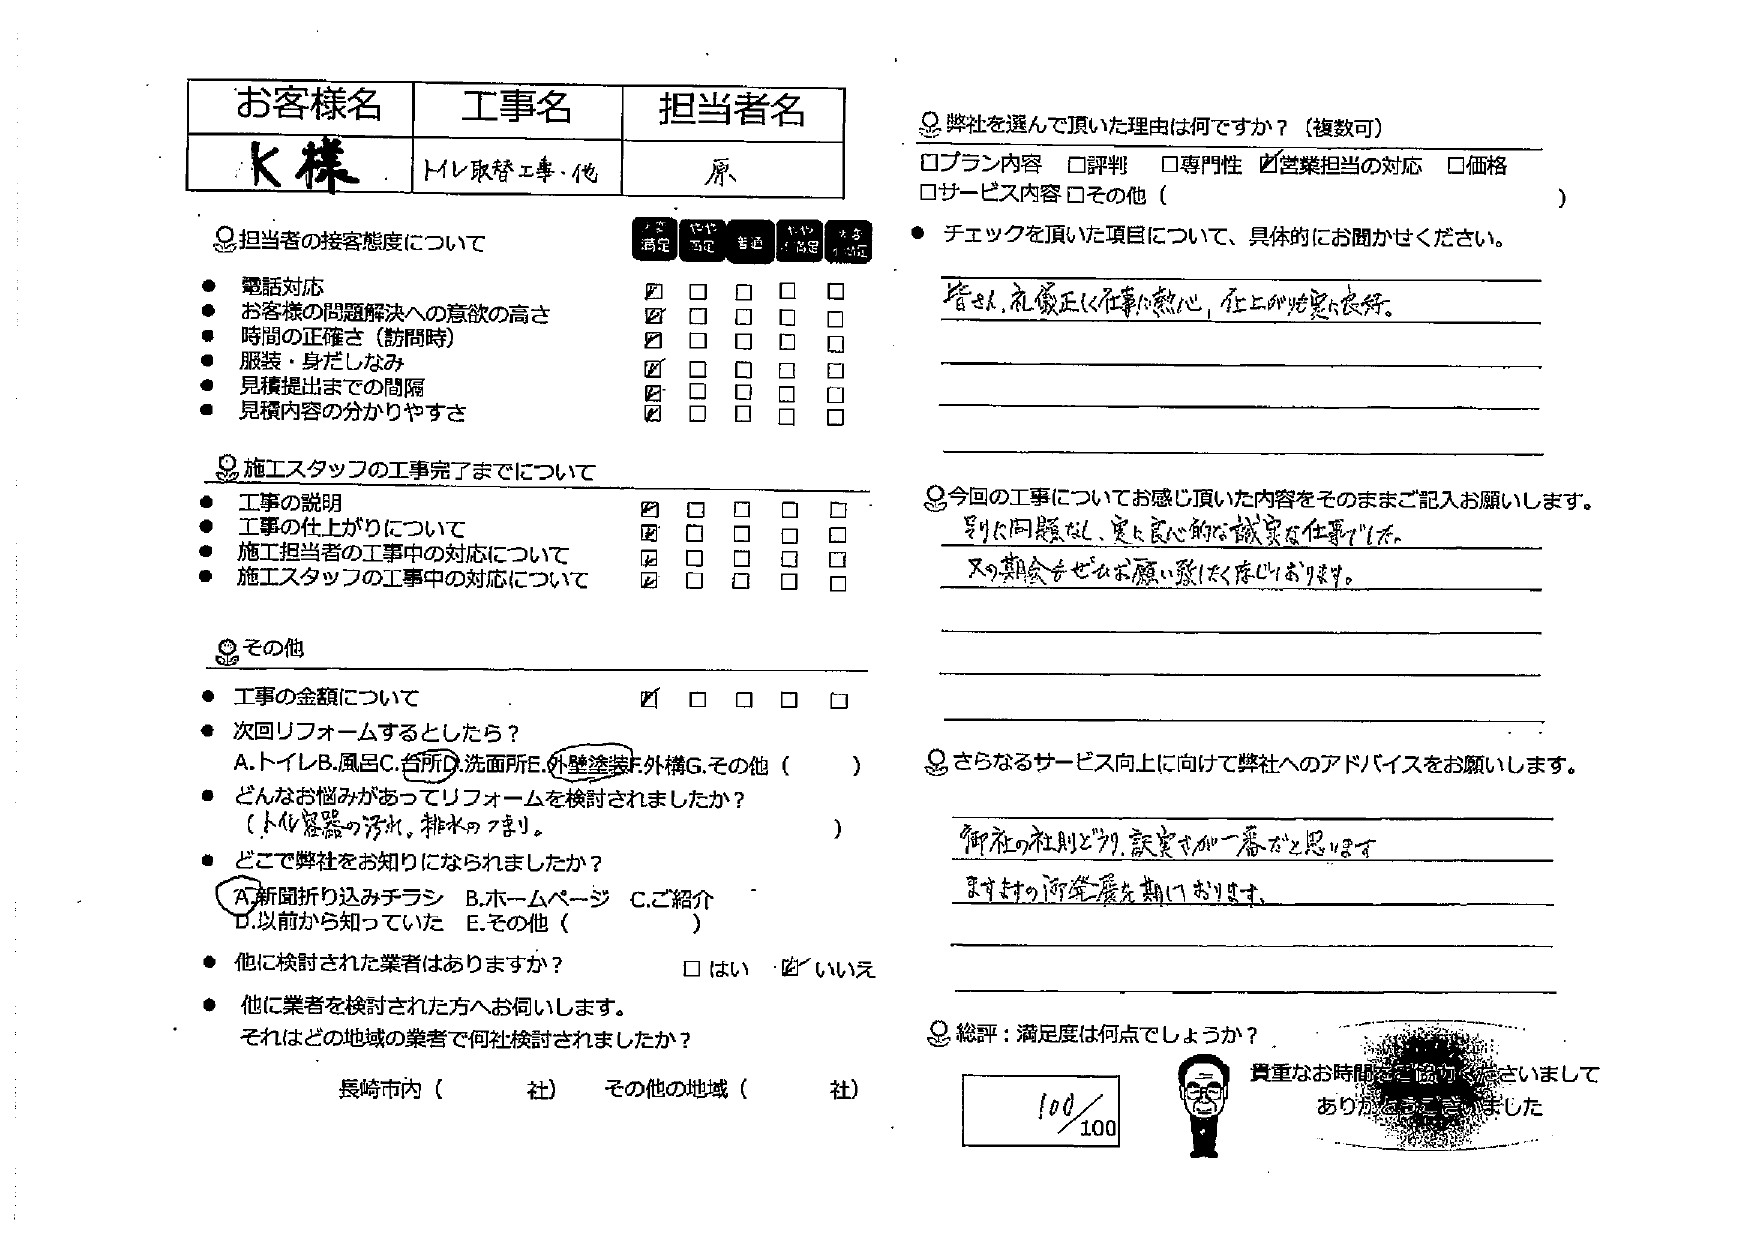 お客様名 工事名 担当者名
K様 トイレ取替工事・他 原
担当者の接客態度について
大変満足 やや満足 普通 やや不満足 大変不満足
電話対応 ☑ □ □ □ □
お客様の問題解決への意欲の高さ ☑ □ □ □ □
時間の正確さ（訪問時） ☑ □ □ □ □
服装・身だしなみ ☑ □ □ □ □
見積提出までの間隔 ☑ □ □ □ □
見積内容の分かりやすさ ☑ □ □ □ □
施工スタッフの工事完了までについて
工事の説明 ☑ □ □ □ □
工事の仕上がりについて ☑ □ □ □ □
施工担当者の工事中の対応について ☑ □ □ □ □
施工スタッフの工事中の対応について ☑ □ □ □ □
その他
工事の金額について ☑ □ □ □ □
次回リフォームするとしたら？
A.トイレB.風呂C.台所D.洗面所E.外壁塗装F.外構G.その他（　　　）
どんなお悩みがあってリフォームを検討されましたか？
（トイレ容器の汚れ。排水のつまり。　　　）
どこで弊社をお知りになられましたか？
A.新聞折り込みチラシ　B.ホームページ　C.ご紹介
D.以前から知っていた　E.その他（　　　）
他に検討された業者はありますか？ □はい ☑いいえ
他に業者を検討された方へお伺いします。
それはどの地域の業者で何社検討されましたか？
長崎市内（　　　社）　その他の地域（　　　社）
弊社を選んで頂いた理由は何ですか？（複数可）
□プラン内容　□評判　□専門性　☑営業担当の対応　□価格
□サービス内容□その他（　　　）
チェックを頂いた項目について、具体的にお聞かせください。
皆さん、礼儀正しく仕事に熱心、仕上がり忠実に良好。
今回の工事についてお感じ頂いた内容をそのままご記入お願いします。
別に問題なし、実に良心的な誠実な仕事でした。
又の期会をぜひお願い致したく存じております。
さらなるサービス向上に向けて弊社へのアドバイスをお願いします。
御社の社則どうり、誠実さが一番だと思います
ますますの御発展を期しております。
総評：満足度は何点でしょうか？
100/100
貴重なお時間をご協力くださいまして
ありがとうございました